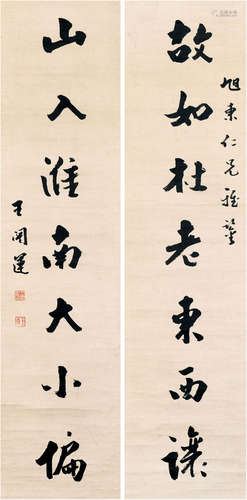 旭東仁兄雅鑒
故如杜老東西讓
山入淮南大小偏
王闓運